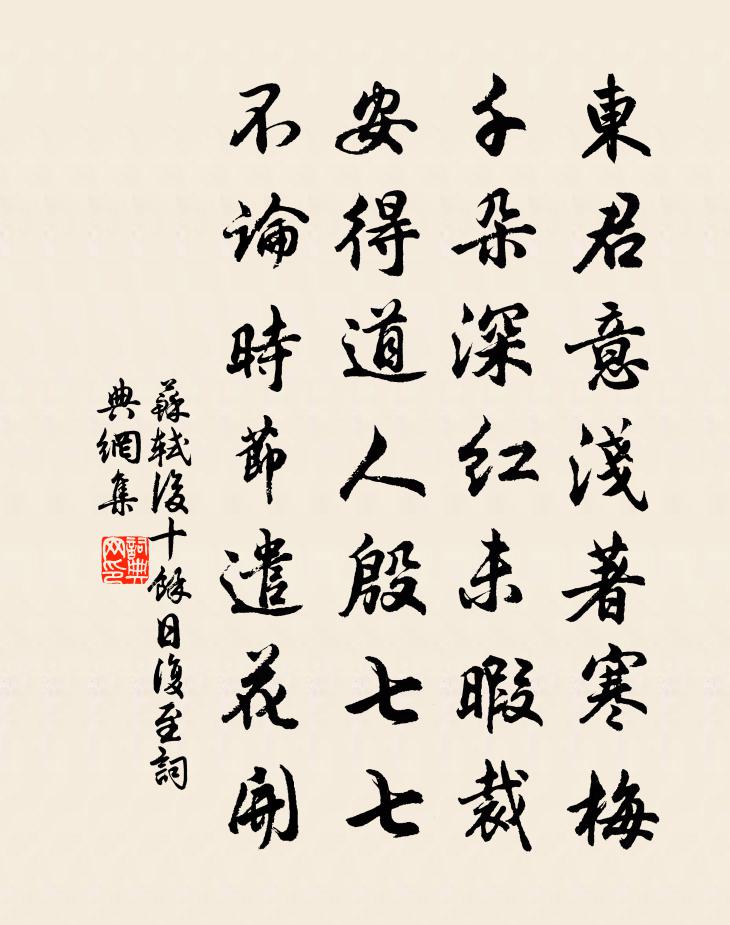 東君意淺著寒梅
千朵深紅未暇裁
安得道人殷七七
不論時節遣花開
蘇軾後十餘日復至詞
典網集
詞典
网印